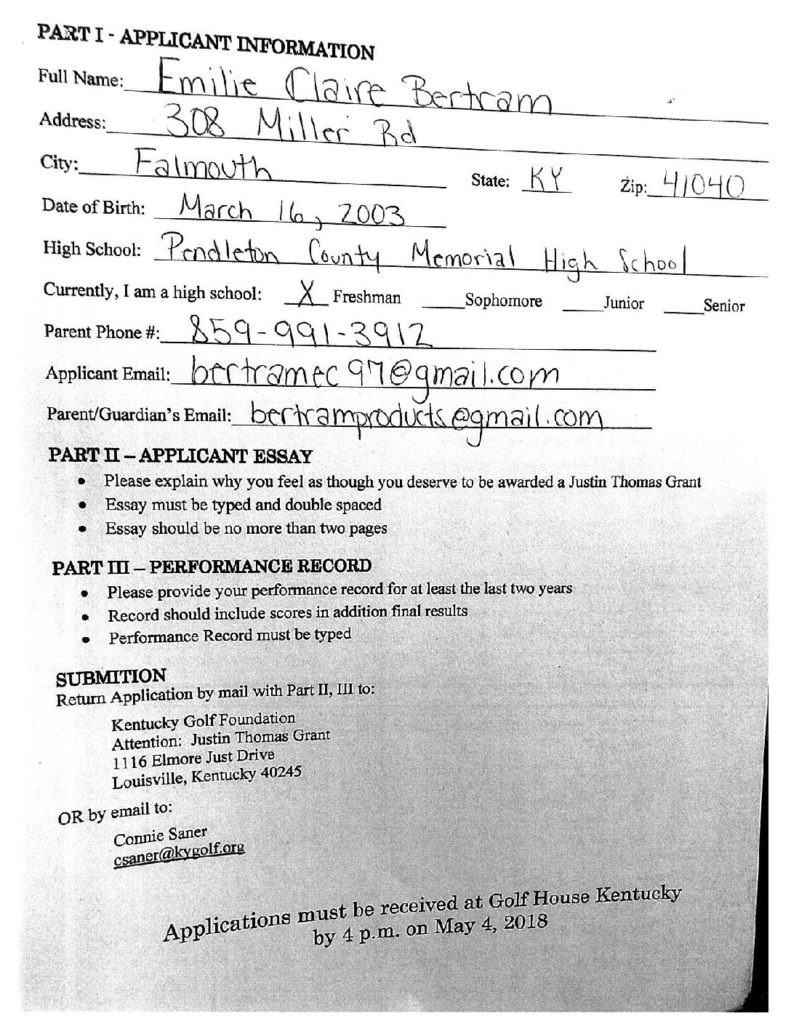 PART I - APPLICANT INFORMATION
Full Name: Emilie Claire Bertram
Address: 308 Miller Rd
City: Falmouth State: KY Zip: 41040
Date of Birth: March 16, 2003
High School: Pendleton County Memorial High School
Currently, I am a high school: X Freshman ____Sophomore ____Junior ____Senior
Parent Phone #: 859-991-3912
Applicant Email: bertramec97@gmail.com
Parent/Guardian's Email: bertramproducts@gmail.com
PART II – APPLICANT ESSAY
• Please explain why you feel as though you deserve to be awarded a Justin Thomas Grant
• Essay must be typed and double spaced
• Essay should be no more than two pages
PART III – PERFORMANCE RECORD
• Please provide your performance record for at least the last two years
• Record should include scores in addition final results
• Performance Record must be typed
SUBMITION
Return Application by mail with Part II, III to:
Kentucky Golf Foundation
Attention: Justin Thomas Grant
1116 Elmore Just Drive
Louisville, Kentucky 40245
OR by email to:
Connie Saner
csaner@kygolf.org
Applications must be received at Golf House Kentucky
by 4 p.m. on May 4, 2018